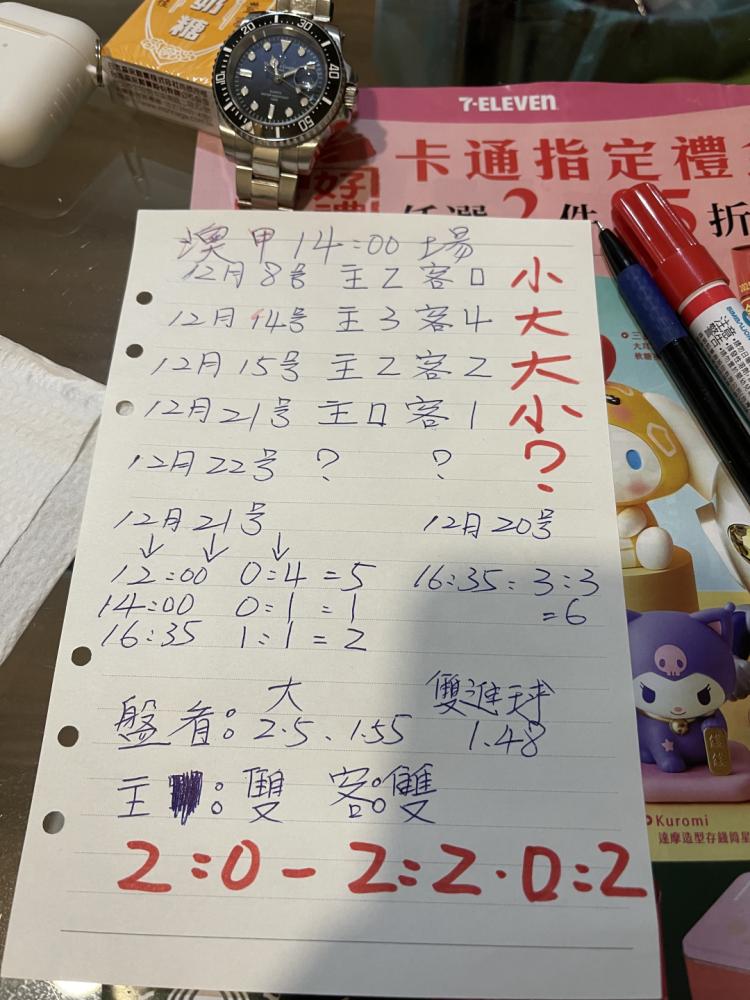 奶
糖
20
30
40
50
7-ELEVEN
卡通指定禮
好
任選2件 5折
澳甲14:00場
12月8号 主2 客0 小
12月14号 主3 客4 大
12月15号 主2 客2 大
12月21号 主0 客1 小
12月22号 ? ? ?
12月21号 12月20号
12:00 0:4 =5 16:35: 3:3
14:00 0:1 =1 =6
16:35 1:1 = 2
大 雙進球
盤看: 2.5、1.55 1.48
主 : 雙 客:雙
2:0 - 2:2·0:2
Kuromi
達摩造型存錢筒